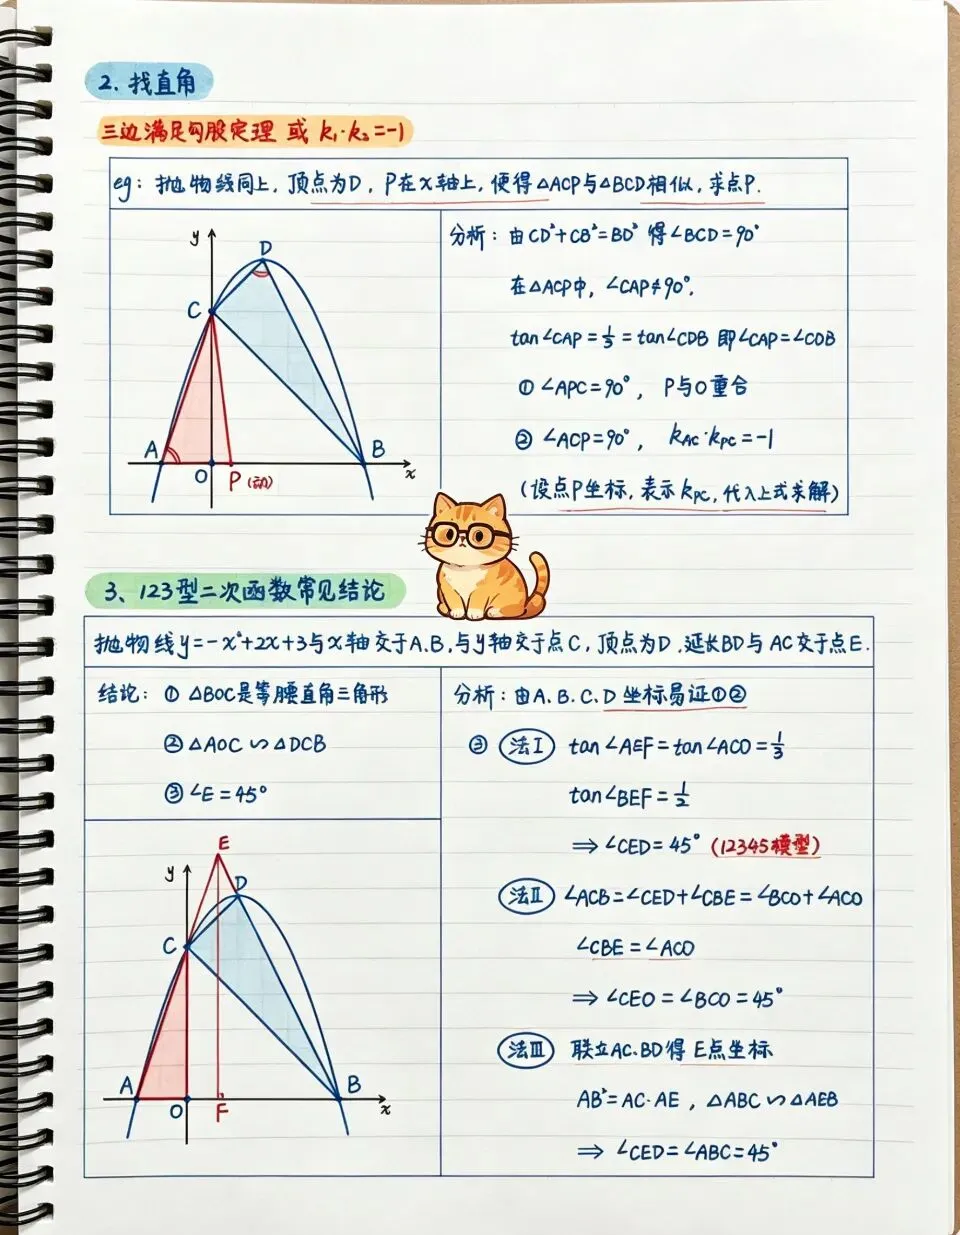 2. 找直角
三边满足勾股定理 或 k₁·k₂=-1
eg: 抛物线同上, 顶点为D, P在x轴上, 使得△ACP与△BCD相似, 求点P.
分析: 由CD²+CB²=BD² 得∠BCD=90°
在△ACP中, ∠CAP≠90°.
tan∠CAP=1/3=tan∠CDB 即∠CAP=∠CDB
① ∠APC=90°, P与O重合
② ∠ACP=90°, kAC·kPC=-1
(设点P坐标, 表示kPC, 代入上式求解)
y
D
C
A
B
O
P(动)
x
3、123型二次函数常见结论
抛物线y=-x²+2x+3与x轴交于A.B,与y轴交于点C, 顶点为D.延长BD与AC交于点E.
结论: ① △BOC是等腰直角三角形
② △AOC∽△DCB
③ ∠E=45°
分析: 由A.B.C.D坐标易证①②
③ 法Ⅰ tan∠AEF=tan∠ACO=1/3
tan∠BEF=1/2
⇒ ∠CED=45° (12345模型)
法Ⅱ ∠ACB=∠CED+∠CBE=∠BCO+∠ACO
∠CBE=∠ACO
⇒ ∠CEO=∠BCO=45°
法Ⅲ 联立AC.BD得E点坐标
AB²=AC·AE, △ABC∽△AEB
⇒ ∠CED=∠ABC=45°
E
y
D
C
A
B
O
F
x